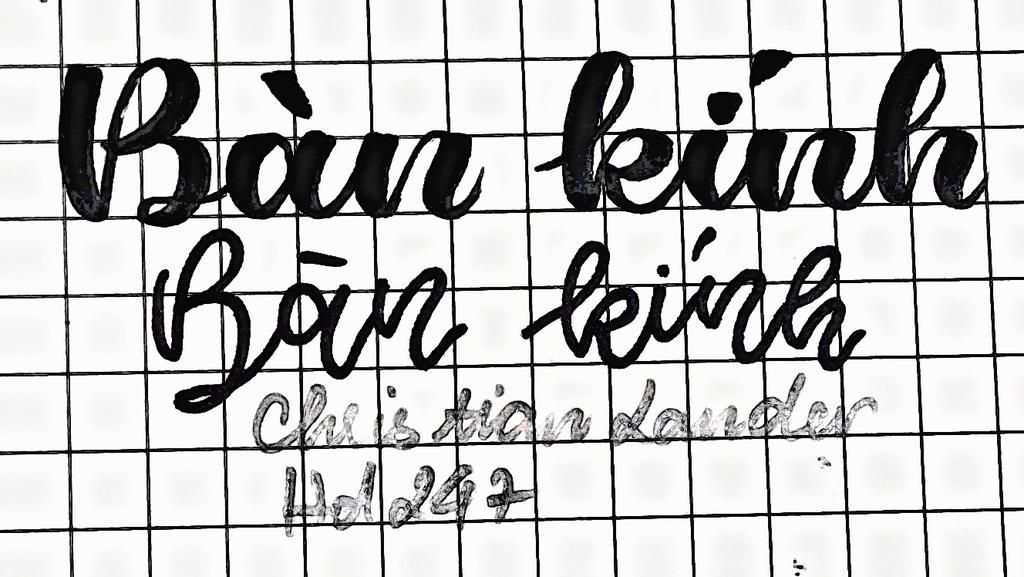 Bàn kính
Bàn kính
Christian Lander
Hd 247